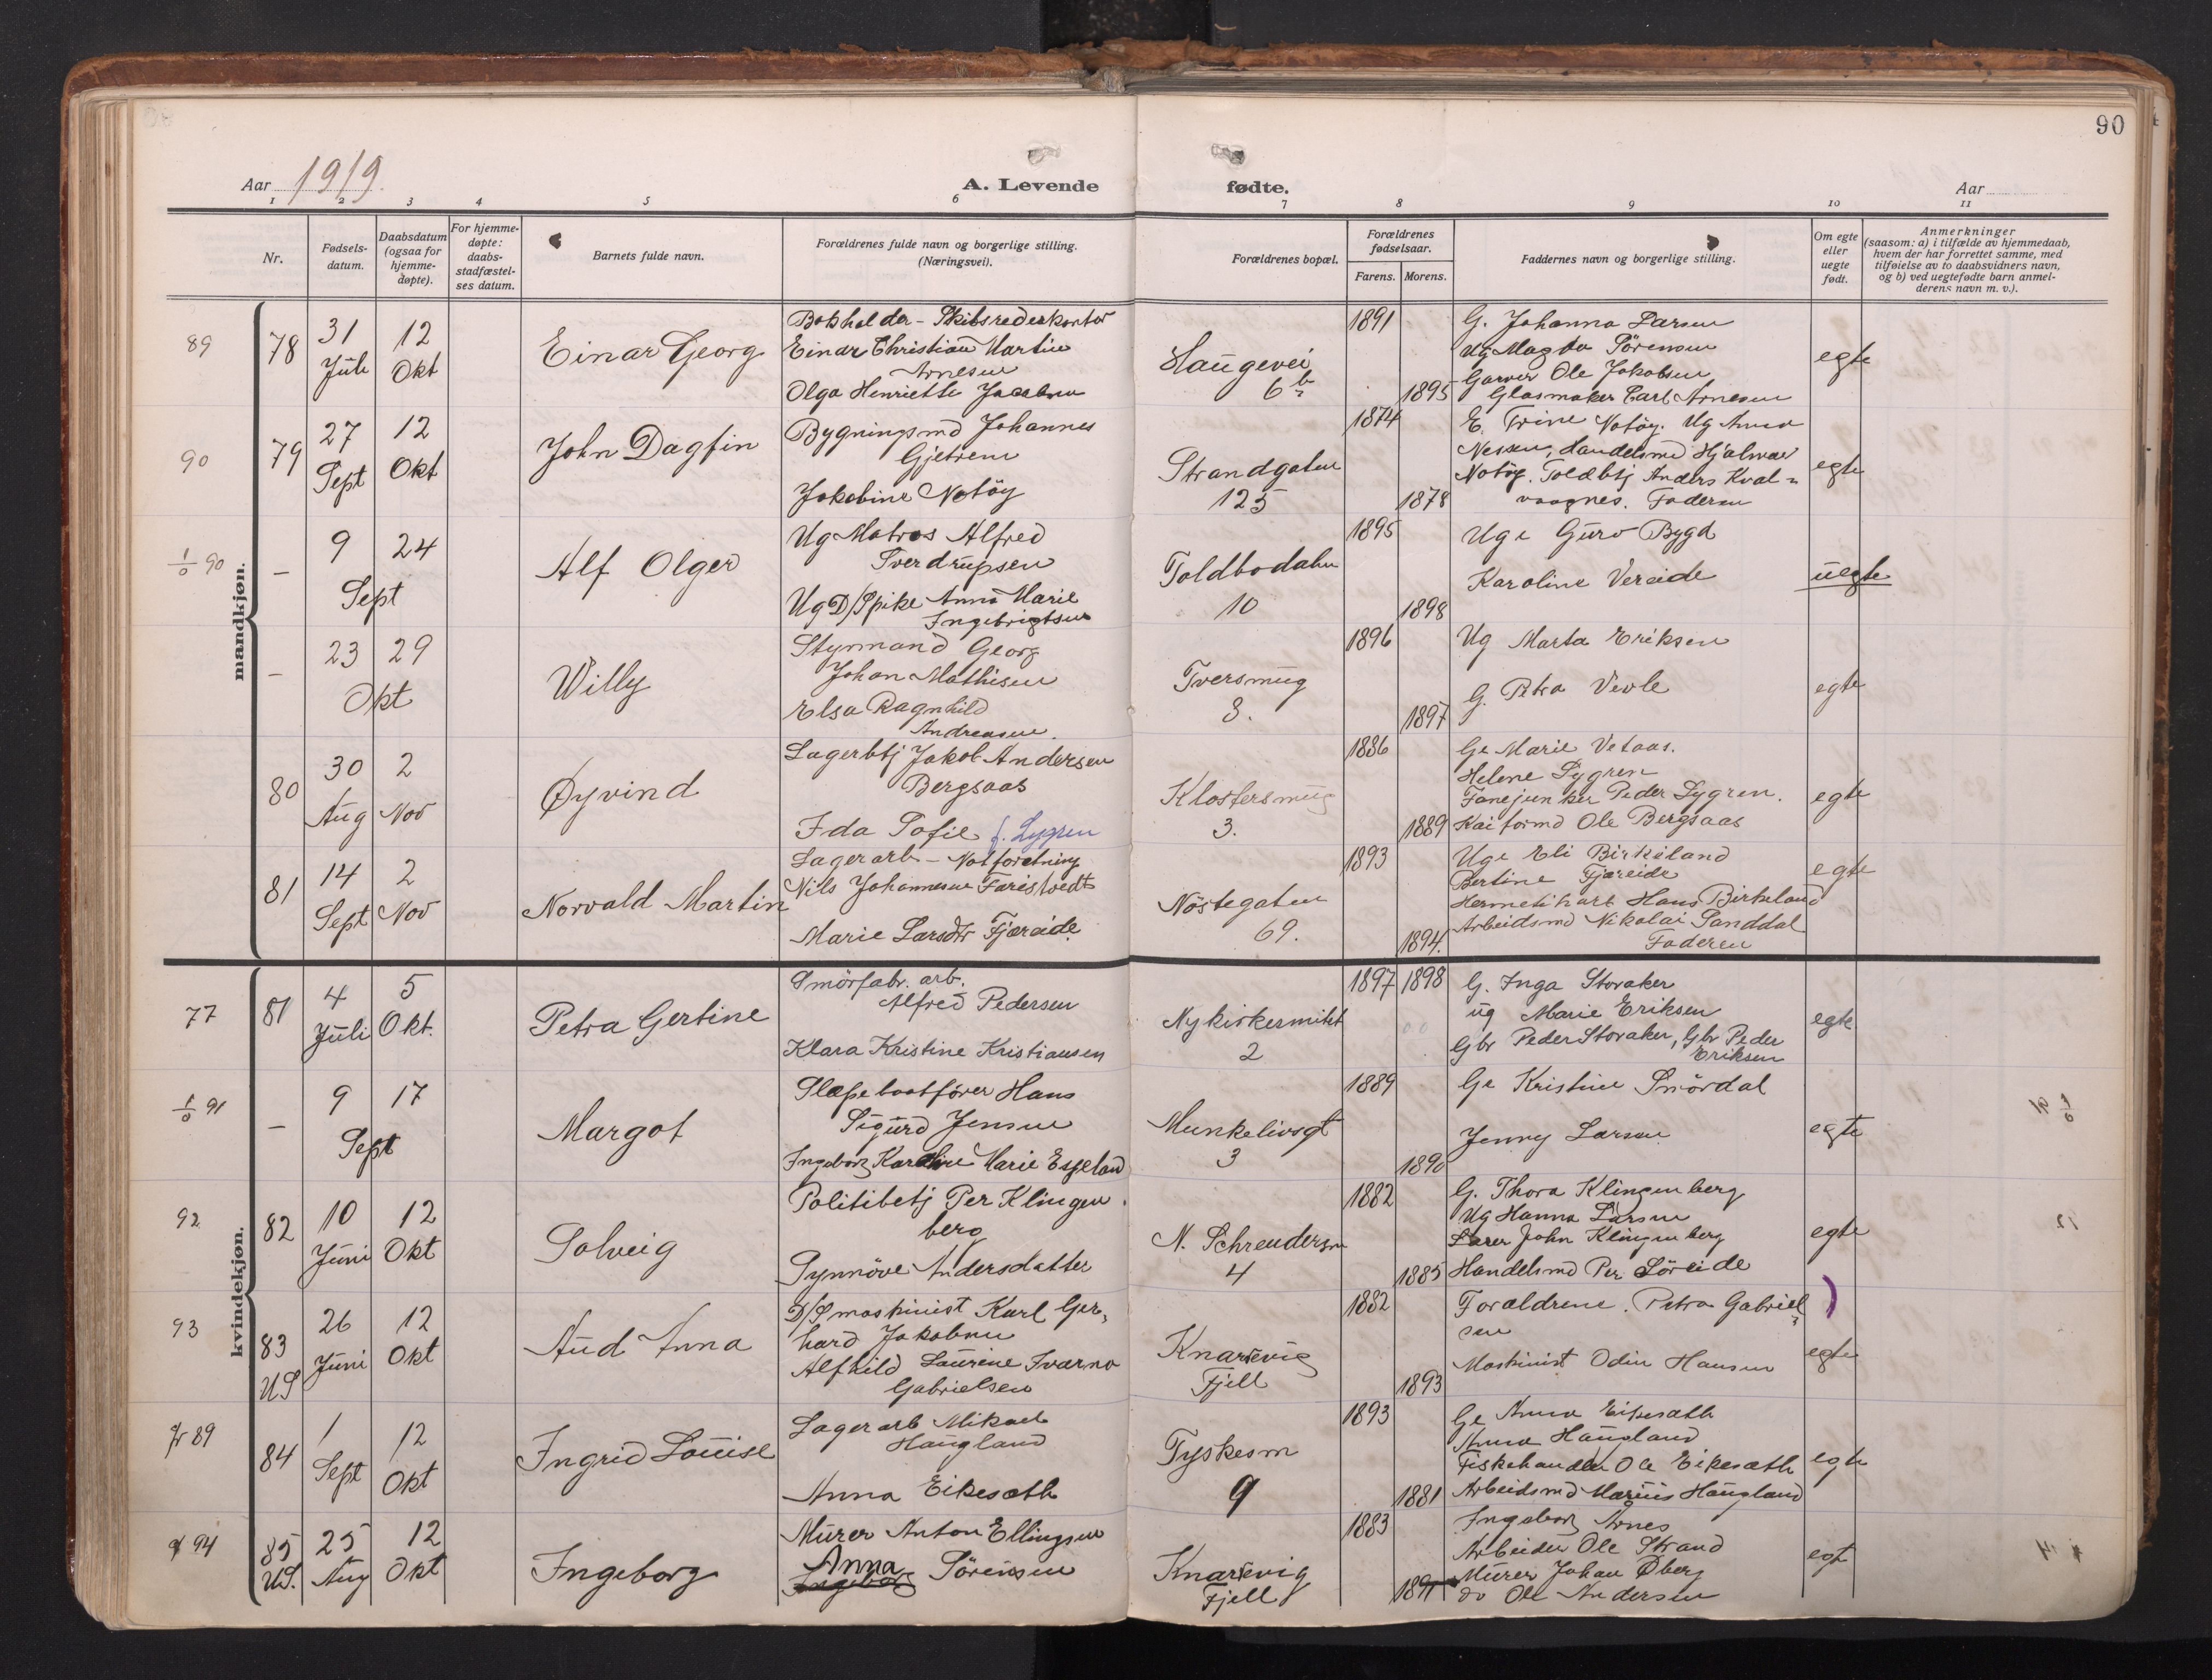 90
Aar 1919.
A. Levende
fødte.
Aar
1 2 3 4 5 6 7 8 9 10 11
Nr.
Fødsels-
datum.
Daabsdatum
(ogsaa for
hjemme-
døpte).
For hjemme-
døpte:
daabs-
stadfæstel-
ses datum.
Barnets fulde navn.
Forældrenes fulde navn og borgerlige stilling.
(Næringsvei).
Forældrenes bopæl.
Forældrenes
fødselsaar.
Farens. Morens.
Faddernes navn og borgerlige stilling.
Om egte
eller
uegte
født.
Anmerkninger
(saasom: a) i tilfælde av hjemmedaab,
hvem der har forrettet samme, med
tilføielse av to daabsvidners navn,
og b) ved uegtefødte barn anmel-
derens navn m. v.).
mandkjøn.
89
78
31
Juli
12
Okt
Einar Georg
Bokholder - Skibsrederkontor
Einar Christian Martin
Arnesen
Olga Henriette Jacobsen
Haugevei
6b
1891
1895
G. Johanna Larsen
Ug Magda Sörensen
Garver Ole Jakobsen
Glasmaker Carl Arnesen
egte
90
79
27
Sept
12
Okt
John Dagfin
Bygningsmd Johannes
Gjetrem
Jakobine Notöy
Strandgaten
125
1874
1878
E. Trine Notöy. Ug Anna
Nessen, Handelsmd Hjalmar
Notöy. Toldbtj Anders Kval-
vaagnes. Faderen
egte
1/0 90
-
9
24
Sept
Alf Olger
Ug Matros Alfred
Sverdrupsen
Ug D/Spike Anna Marie
Ingebrigtsen
Toldbodalm
10
1895
1898
Uge Guro Bygd
Karoline Vereide
uegte
-
23
29
Okt
Willy
Styrmand Georg
Johan Mathisen
Elsa Ragnhild
Andreasen.
Tversmug
3.
1896
1897
Ug Marta Eriksen
G. Petra Vevle
egte
80
30
Aug
2
Nov
Øyvind
Lagerbtj Jakob Andersen
Bergsaas
Ida Sofie f. Lygren
Klostersmug
3.
1886
1889
Ge Marie Vetaas.
Helene Lygren
Fanejunker Peder Lygren.
Kaiformd Ole Bergsaas
egte
81
14
Sept
2
Nov
Norvald Martin
Lagerarb - Notforetning
Nils Johannesen Faristvedt
Marie Larsdtr Fjæreide
Nöstegaten
69.
1893
1894.
Uge Eli Birkeland
Bertine Fjæreide
Hermetikarb Hans Birkeland
Arbeidsmd Nikolai Sanddal
Faderen
egte
kvindekjøn.
77
81
4
Juli
5
Okt.
Petra Gertine
Smörfabr. arb.
Alfred Pedersen
Klara Kristine Kristiansen
Nykirkesmitt
2
1897 1898
G. Inga Storaker
ug Marie Eriksen
Gbr Peder Storaker, Gbr Peder
Eriksen
egte
1/0 91
-
9
17
Sept
Margot
Slæpebaatförer Hans
Sigurd Jensen
Ingeborg Karoline Marie Espeland
Munkelivsgt
3
1889
1890
Ge Kristine Smördal
Jenny Larsen
egte
92
82
10
Juni
12
Okt
Solveig
Politibetj Per Klingen
berg
Synnöve Andersdatter
N. Schreudersm
4
1882
1885
G. Thora Klingenberg
Ug Hanna Larsen
Lærer John Klingenberg
Handelsmd Per Söreide
egte
93
83
US
26
Juni
12
Okt
Aud Anna
D/S maskinist Karl Ger-
hard Jakobsen
Alfhild Laurine Ivarna
Gabrielsen
Knarrevig
Fjell
1882
1893
Forældrene. Petra Gabriel-
sen
Maskinist Odin Hansen
egte
89
84
1
Sept
12
Okt
Ingrid Louise
Lagerarb Mikael
Haugland
Anna Eikesæth
Tyskesm
9
1893
1881
Ge Anna Eikesæth
Anna Haugland
Fiskehandler Ole Eikesæth
Arbeidsmd Marius Haugland
egte
94
85
US.
25
Aug
12
Okt
Ingeborg
Murer Anton Ellingsen
Anna
Ingeborg Sörensen
Knarrevig
Fjell
1883
1891
Ingeborg Arnes
Arbeider Ole Strand
Murer Johan Øberg
do Ole Andersen
egte